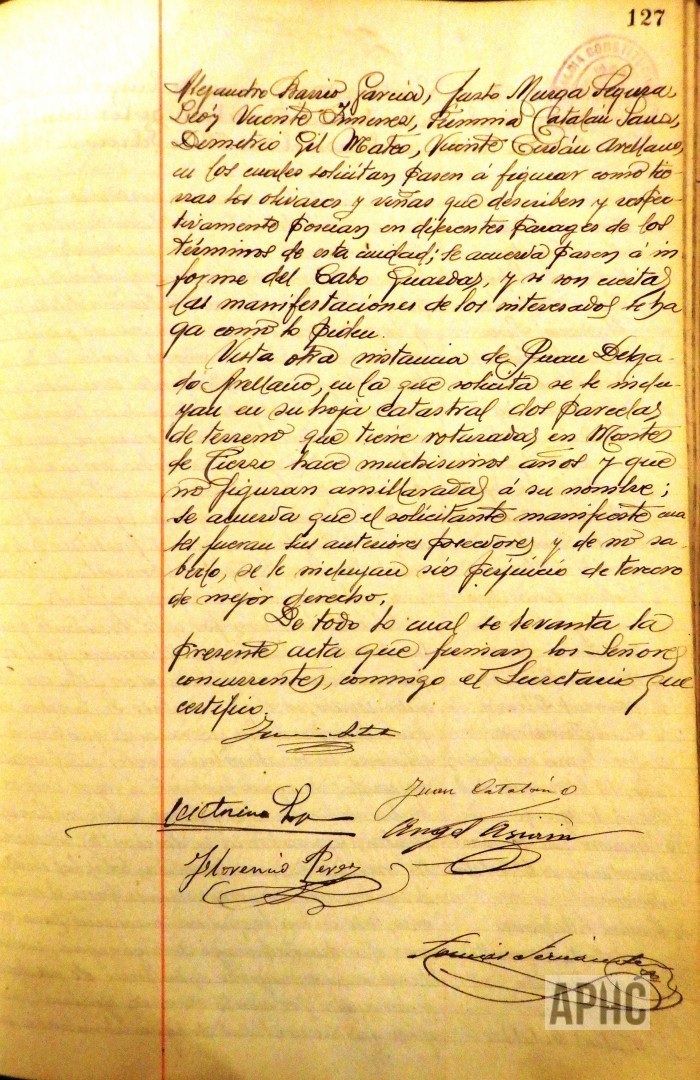 127
Alejandro Barrio Garcia, Justo Murga Segura,
León Vicente Jimenez, Fermina Catalan Sanz,
Demetrio Gil Mateo, Vicente Arellano,
en los cuales solicitan pasen á figurar como tie-
rras los olivares y viñas que describen y respec-
tivamente poseian en diferentes parages de los
términos de esta ciudad; se acuerda pasen á in-
forme del Cabo Guardas, y si son ciertas
las manifestaciones de los interesados se ha-
ga como lo piden.
Vista otra instancia de Juan Delga-
do Arellano, en la que solicita se le inclu-
yan en su hoja catastral dos parcelas
de terreno que tiene roturadas en Montes
de Cierzo hace muchisimos años y que
no figuran amillaradas á su nombre;
se acuerda que el solicitante manifieste cua-
les fueran sus anteriores poseedores y de no sa-
berlo, se le incluyan sin perjuicio de tercero
de mejor derecho.
De todo lo cual se levanta la
presente acta que firman los Señores
concurrentes, conmigo el Secretario que
certifico.
Juan Catalán
Victorino
Angel Asiain
Florencio Perez
Tomás
APHC